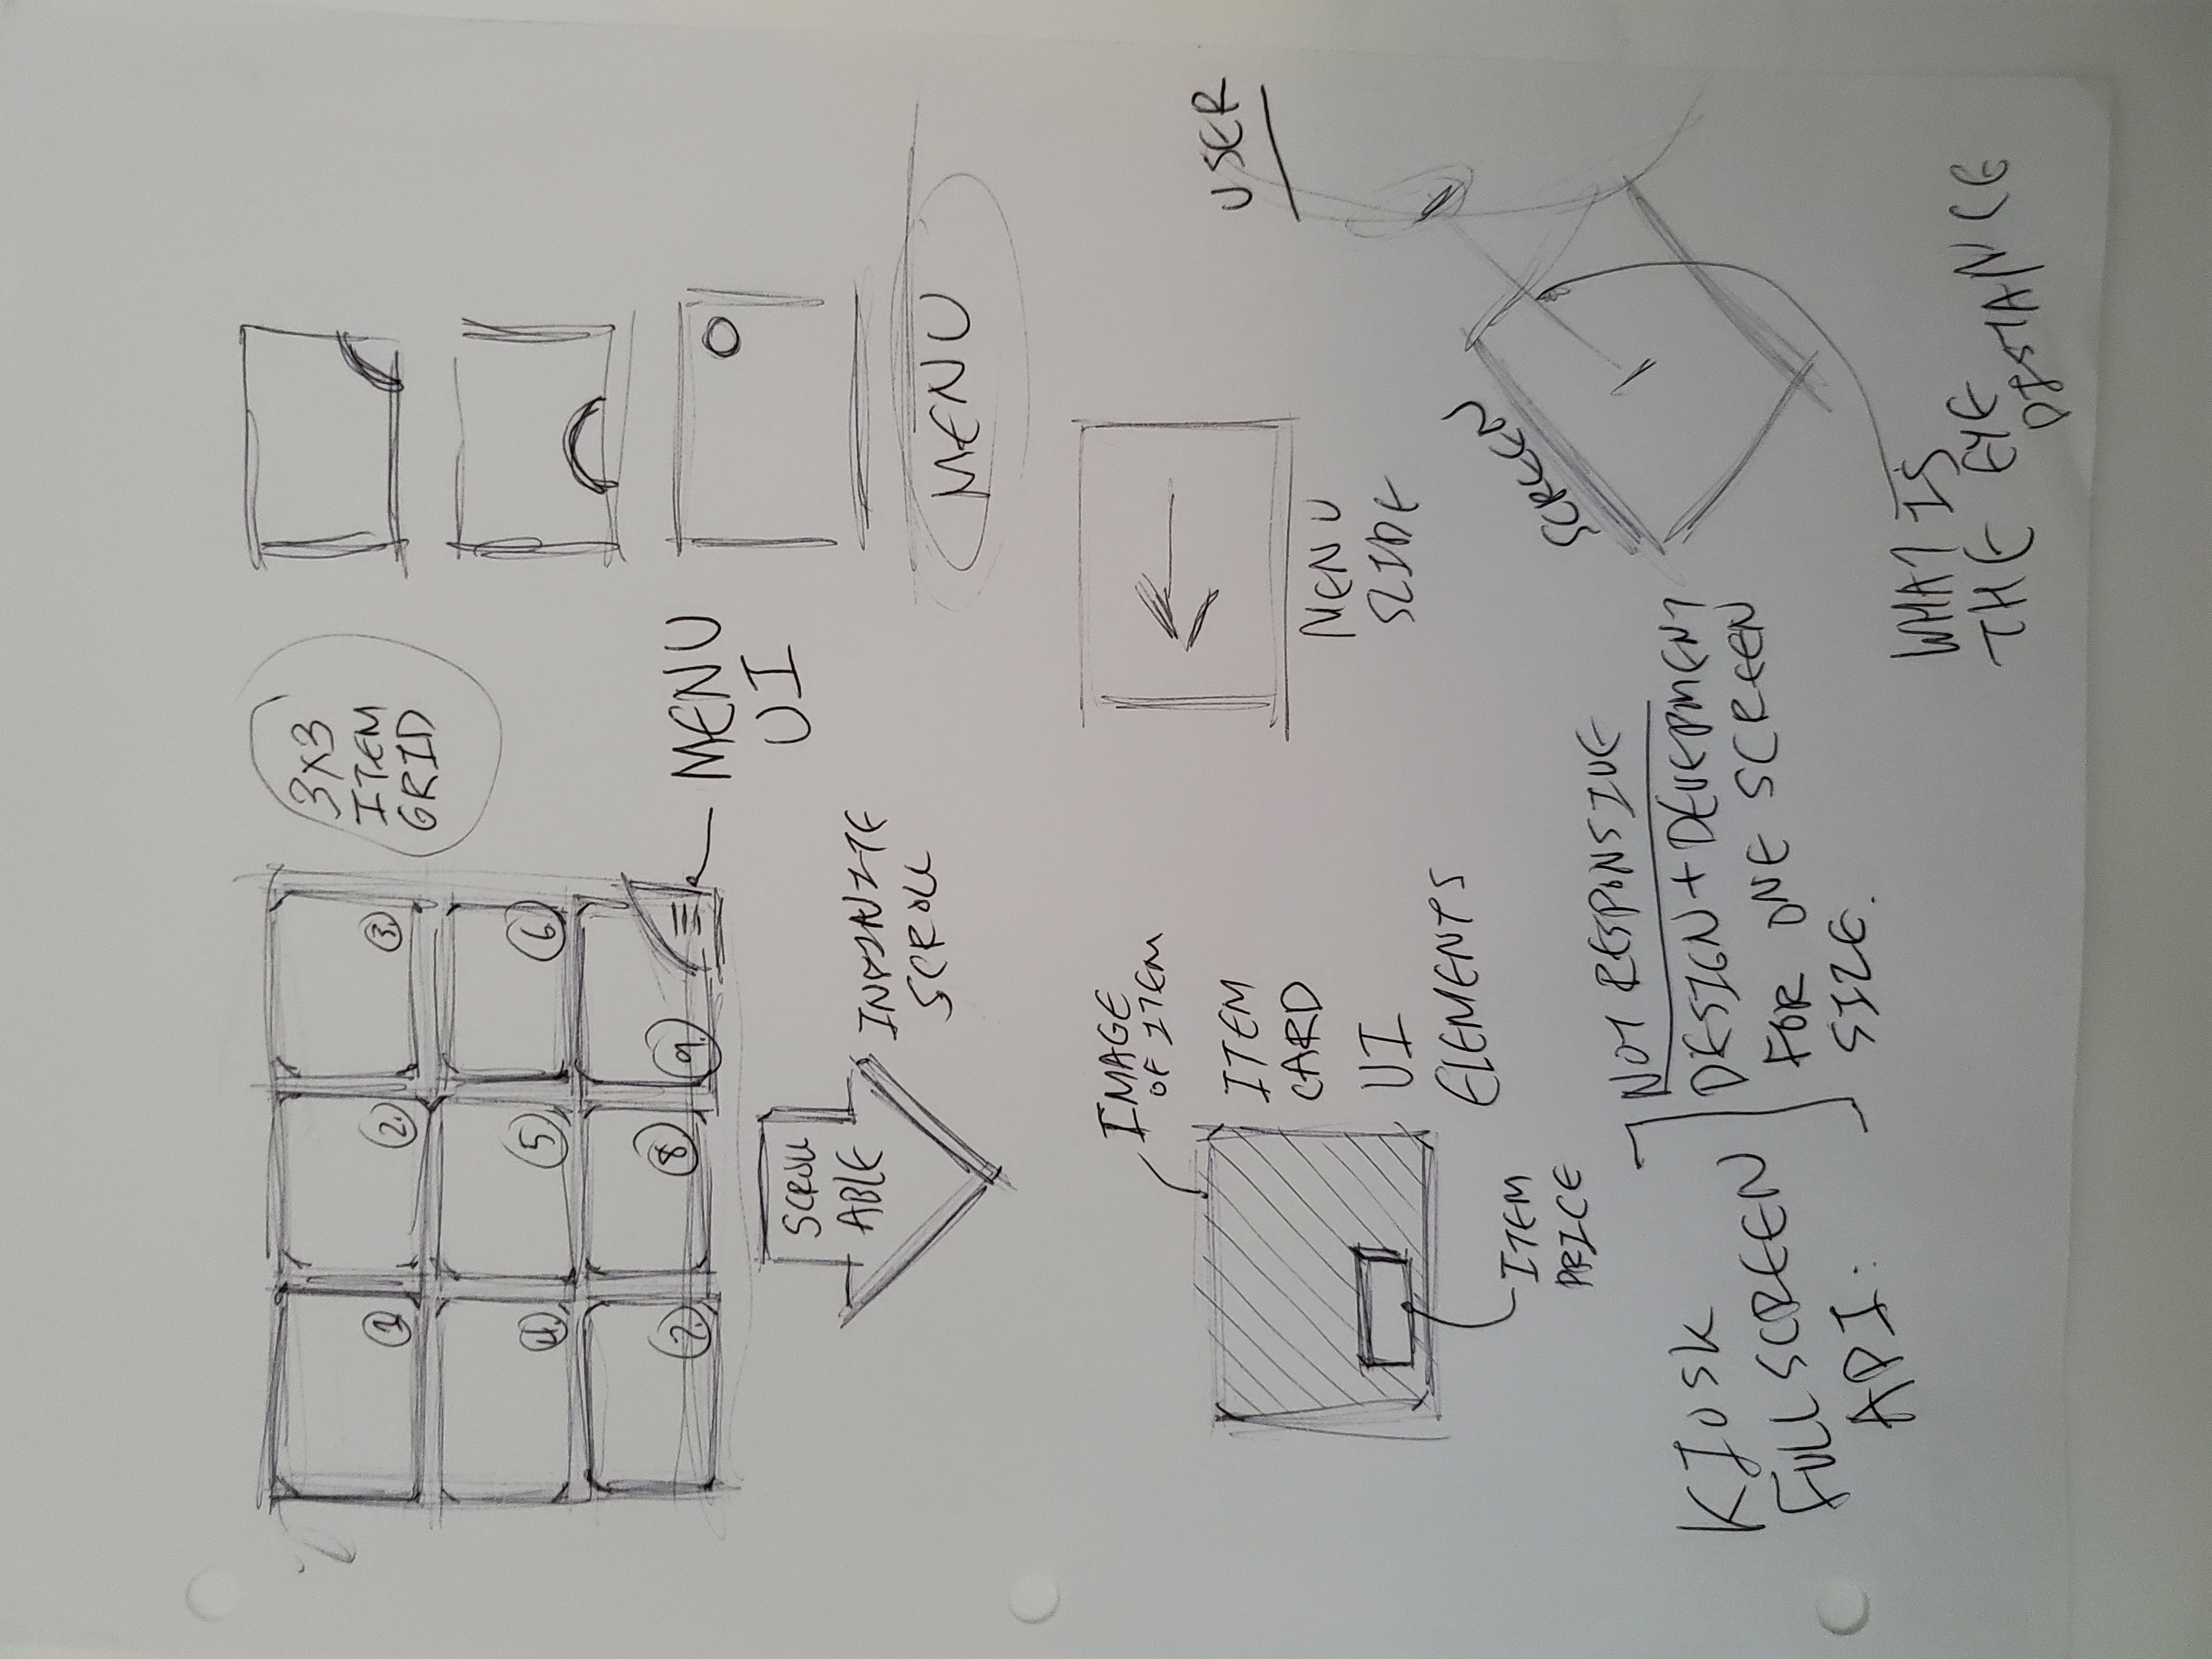 1
2.
3.
4.
5.
6.
7.
8
9
3x3
ITEM
GRID
MENU
UI
SCROLL
ABLE
INFINITE
SCROLL
MENU
IMAGE
OF ITEM
ITEM
CARD
UI
ELEMENTS
ITEM
PRICE
MENU
SLIDE
USER
SCREEN
KIOSK
FULLSCREEN
API:
NOT RESPONSIVE
DESIGN + DEVEPMENT
FOR ONE SCREEN
SIZE.
WHAT IS
THE EYE
DISTANCE